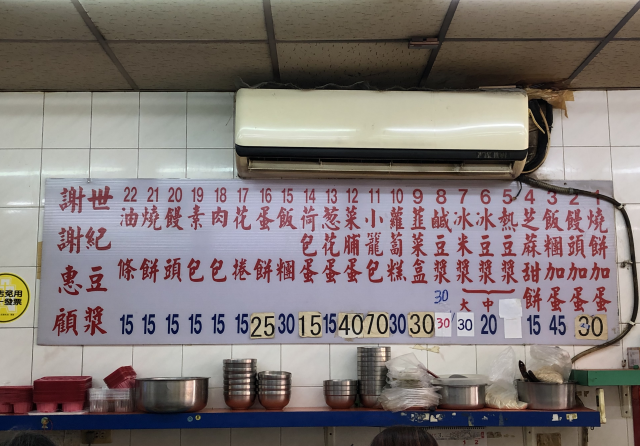 1 燒餅加蛋 30
2 饅頭加蛋
3 飯糰加蛋 45
4 芝蔴甜餅 15
5 熱豆漿
6 冰豆漿 中 20
7 冰米漿 大 30
8 鹹豆漿 30 30
9 韮菜盒 30
10 蘿蔔糕 30
11 小籠包 70
12 菜脯蛋 40
13 葱花蛋 15
14 荷包蛋 15
15 飯糰 30
16 蛋餅 25
17 花捲 15
18 肉包 15
19 素包 15
20 饅頭 15
21 燒餅 15
22 油條 15
世紀豆漿
謝謝惠顧
免用
發票